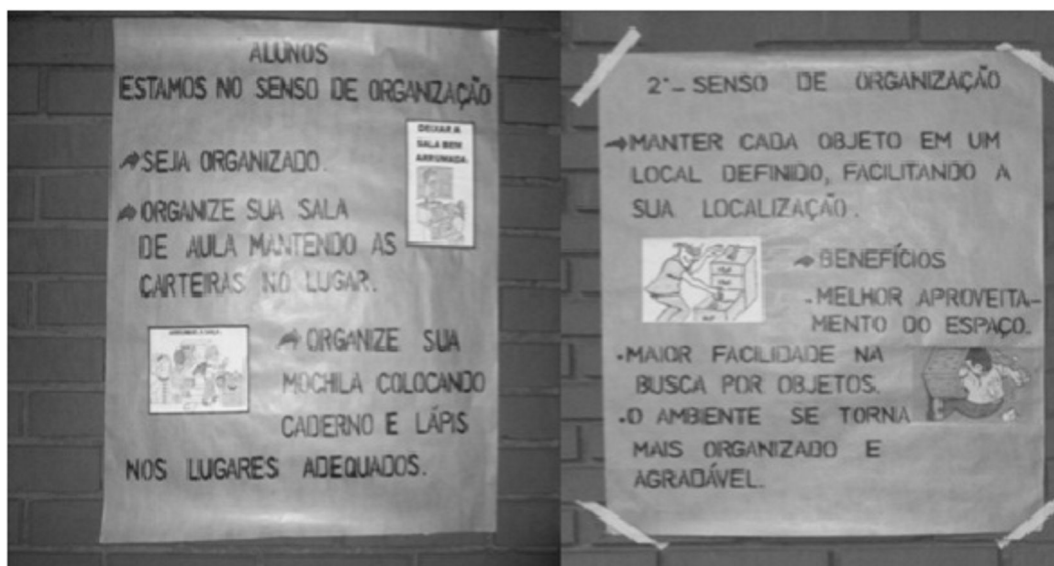 ALUNOS
ESTAMOS NO SENSO DE ORGANIZAÇÃO
SEJA ORGANIZADO.
DEIXAR A
SALA BEM
ARRUMADA.
ORGANIZE SUA SALA
DE AULA MANTENDO AS
CARTEIRAS NO LUGAR.
ORGANIZE SUA
MOCHILA COLOCANDO
CADERNO E LÁPIS
NOS LUGARES ADEQUADOS.
2º- SENSO DE ORGANIZAÇÃO
MANTER CADA OBJETO EM UM
LOCAL DEFINIDO, FACILITANDO A
SUA LOCALIZAÇÃO.
BENEFÍCIOS
-MELHOR APROVEITA-
MENTO DO ESPAÇO.
-MAIOR FACILIDADE NA
BUSCA POR OBJETOS.
-O AMBIENTE SE TORNA
MAIS ORGANIZADO E
AGRADÁVEL.